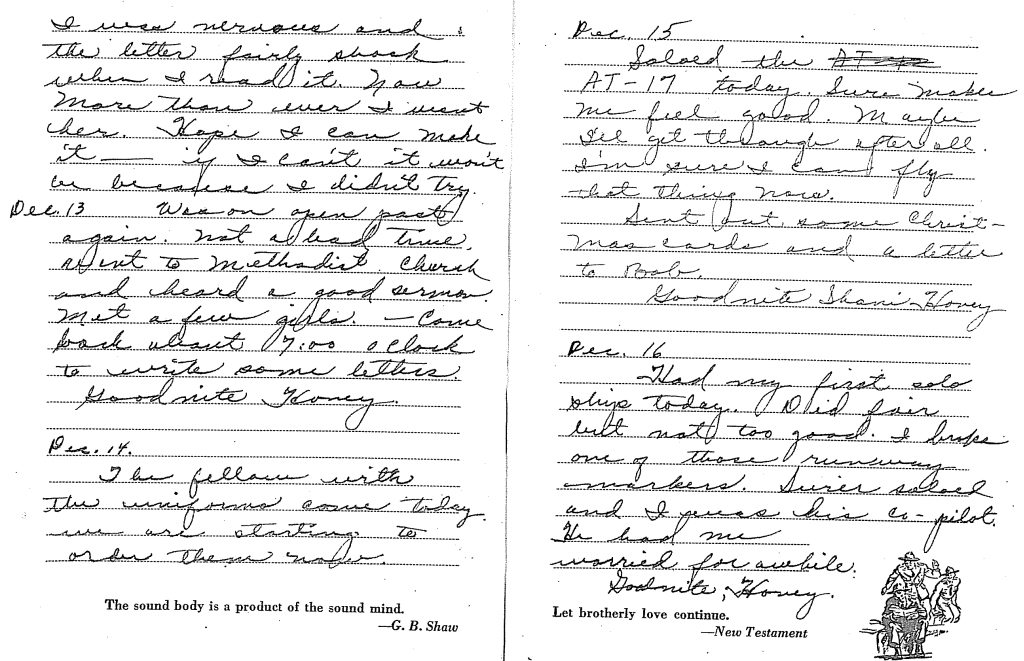 I was nervous and
the letter fairly shook
when I read it. Now
more than ever I want
her. Hope I can make
it — if I can't it won't
be because I didn't try.
Dec. 13 Was on open post
again. Not a bad time.
Went to Methodist Church
and heard a good sermon.
Met a few girls. — Come
back about 7:00 o'clock
to write some letters.
Goodnite Honey.
Dec. 14.
The fellow with
the uniforms come today.
we are starting to
order them now.
The sound body is a product of the sound mind.
—G. B. Shaw
Dec. 15
Soloed the
AT-17 today. Sure makes
me feel good. Maybe
I'll get through after all.
I'm sure I can fly
that thing now.
Sent out some Christ-
mas cards and a letter
to Bob.
Goodnite Shani-Honey
Dec. 16
Had my first solo
ship today. Did fair
but not too good. I broke
one of those runway
markers. soloed
and I was his co-pilot.
He had me
worried for awhile.
Goodnite, Honey.
Let brotherly love continue.
—New Testament